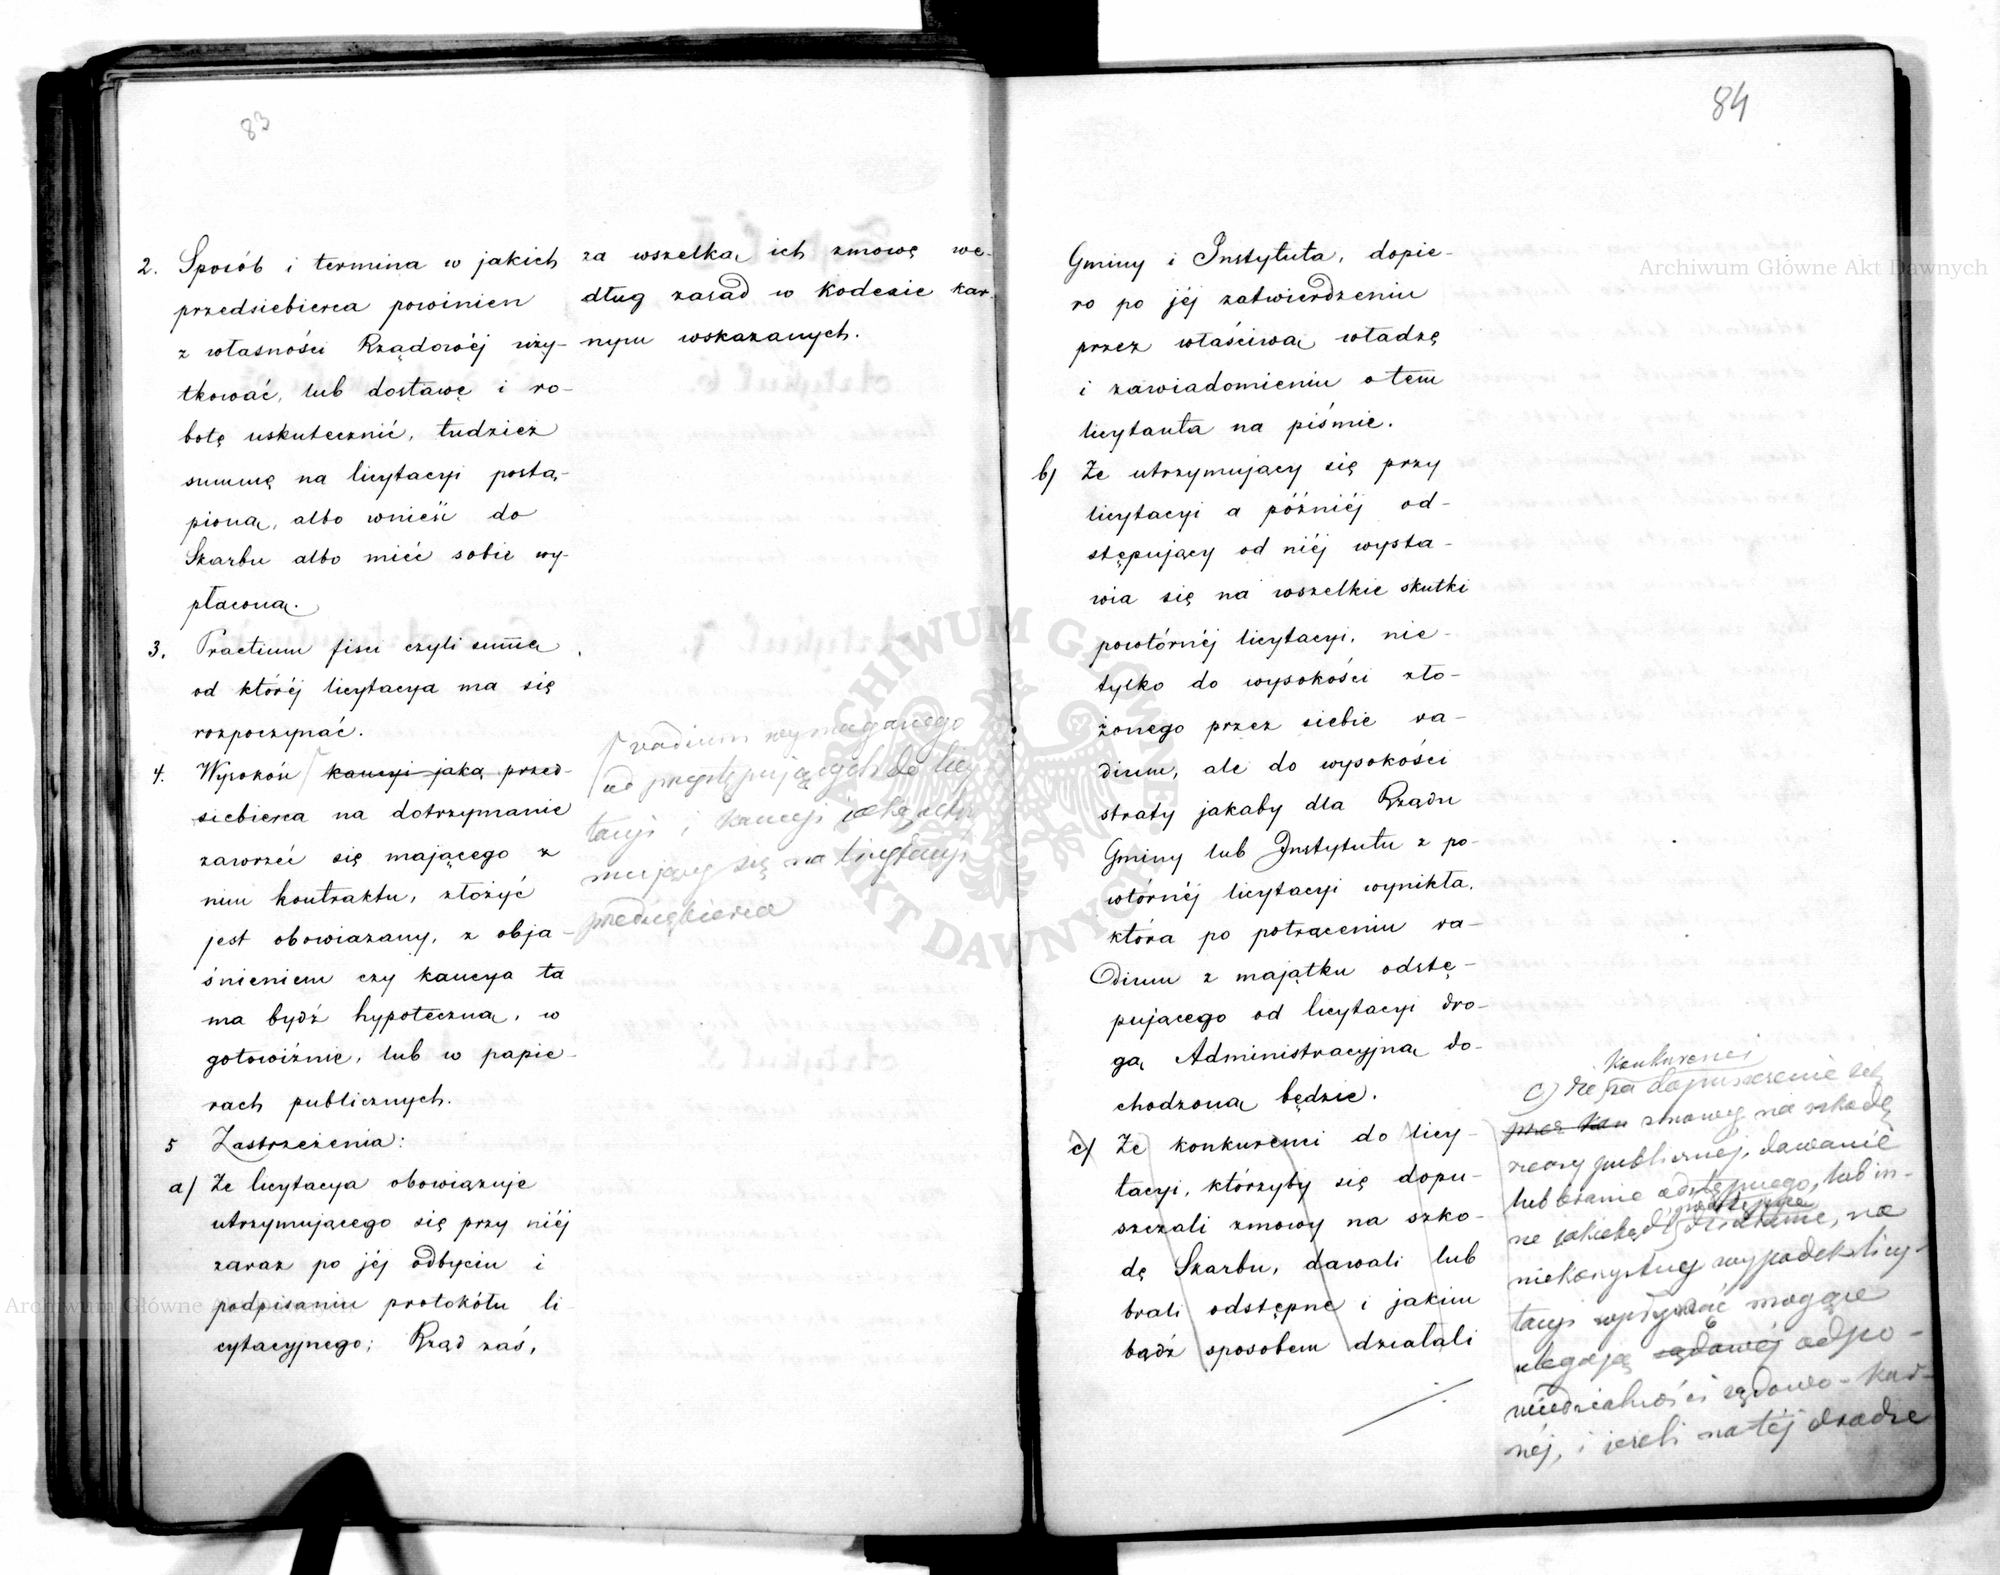 83
2. Sposób i termina w jakich
przedsiebierca powinien
z własności Rządowéj uży-
tkować, lub dostawę i ro-
botę uskutecznić, tudzież
summę na licytacyi postą-
pioną, albo wnieść do
Skarbu albo mieć sobie wy-
płaconą.
3. Praetium fisci czyli summa
od któréj licytacya ma się
rozpoczynać.
4. Wysokość kaucyi jaką przed-
siebierca na dotrzymanie
zawrzeć się mającego z
nim kontraktu, złożyć
jest obowiązany, z obja-
śnieniem czy kaucya ta
ma bydź hypoteczną, w
gotowiźnie, lub w papie-
rach publicznych.
5 Zastrzeżenia:
a/ Że licytacya obowiązuje
utrzymującego się przy niéj
zaraz po jéj odbyciu i
podpisaniu protokółu li
cytacyjnego; Rząd zaś,
za wszelką ich zmowę we-
dług zasad w kodexie kar-
nym wskazanych.
vadium wymaganego
od przystępujących do licy
tacyi i kaucyi jaką utrzy
mujący się na licytacyi
przedsiębierca
84
Gminy i Instytuta, dopie-
ro po jéj zatwierdzeniu
przez właściwą władzę
i zawiadomieniu o tem
licytanta na piśmie.
b/ Że utrzymujący się przy
licytacyi a późniéj od-
stępujący od niéj wysta-
wia się na wszelkie skutki
powtórnéj licytacyi, nie-
tylko do wysokości zło-
żonego przez siebie va-
dium, ale do wysokości
straty jakaby dla Rządu
Gminy lub Instytutu z po-
wtórnéj licytacyi wynikła,
która po potrąceniu va-
dium z majątku odstę-
pującego od licytacyi dro-
gą Administracyjną do-
chodzoną będzie.
c/ Że konkurenci do licy-
tacyi, którzyby się dopu-
szczali zmowy na szko-
dę Skarbu, dawali lub
brali odstępne i jakim
bądź sposobem działali
konkurenci
c) że za dopuszczenie się
przez kon zmowy na szkodę
rzeczy publicznéj, dawanie
lub branie odstępnego, lub in-
ne jakiebądź działanie, na
podstępne
niekorzystny wypadek licy-
tacyi wpływać mogące
ulegają sądowéj odpo-
wiedzialności sądowo-kar-
néj, i jeżeli na téj drodze
Archiwum Główne Akt Dawnych
Archiwum Główne Akt Dawnych
ARCHIWUM GŁÓWNE AKT DAWNYCH